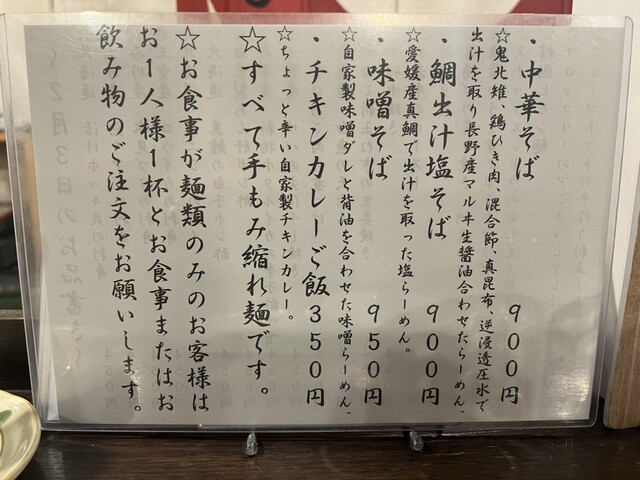 ・中華そば　９００円
☆鬼北雉、鶏ひき肉、混合節、真昆布、逆浸透圧水で
出汁を取り長野産マルヰ生醤油合わせたらーめん。
・鯛出汁塩そば　９００円
☆愛媛産真鯛で出汁を取った塩らーめん。
・味噌そば　９５０円
☆自家製味噌ダレと背油を合わせた味噌らーめん。
・チキンカレーご飯３５０円
☆ちょっと辛い自家製チキンカレー。
☆すべて手もみ縮れ麺です。
☆お食事が麺類のみのお客様は
お１人様１杯とお食事またはお
飲み物のご注文をお願いします。
〜２月３日のお品書き〜